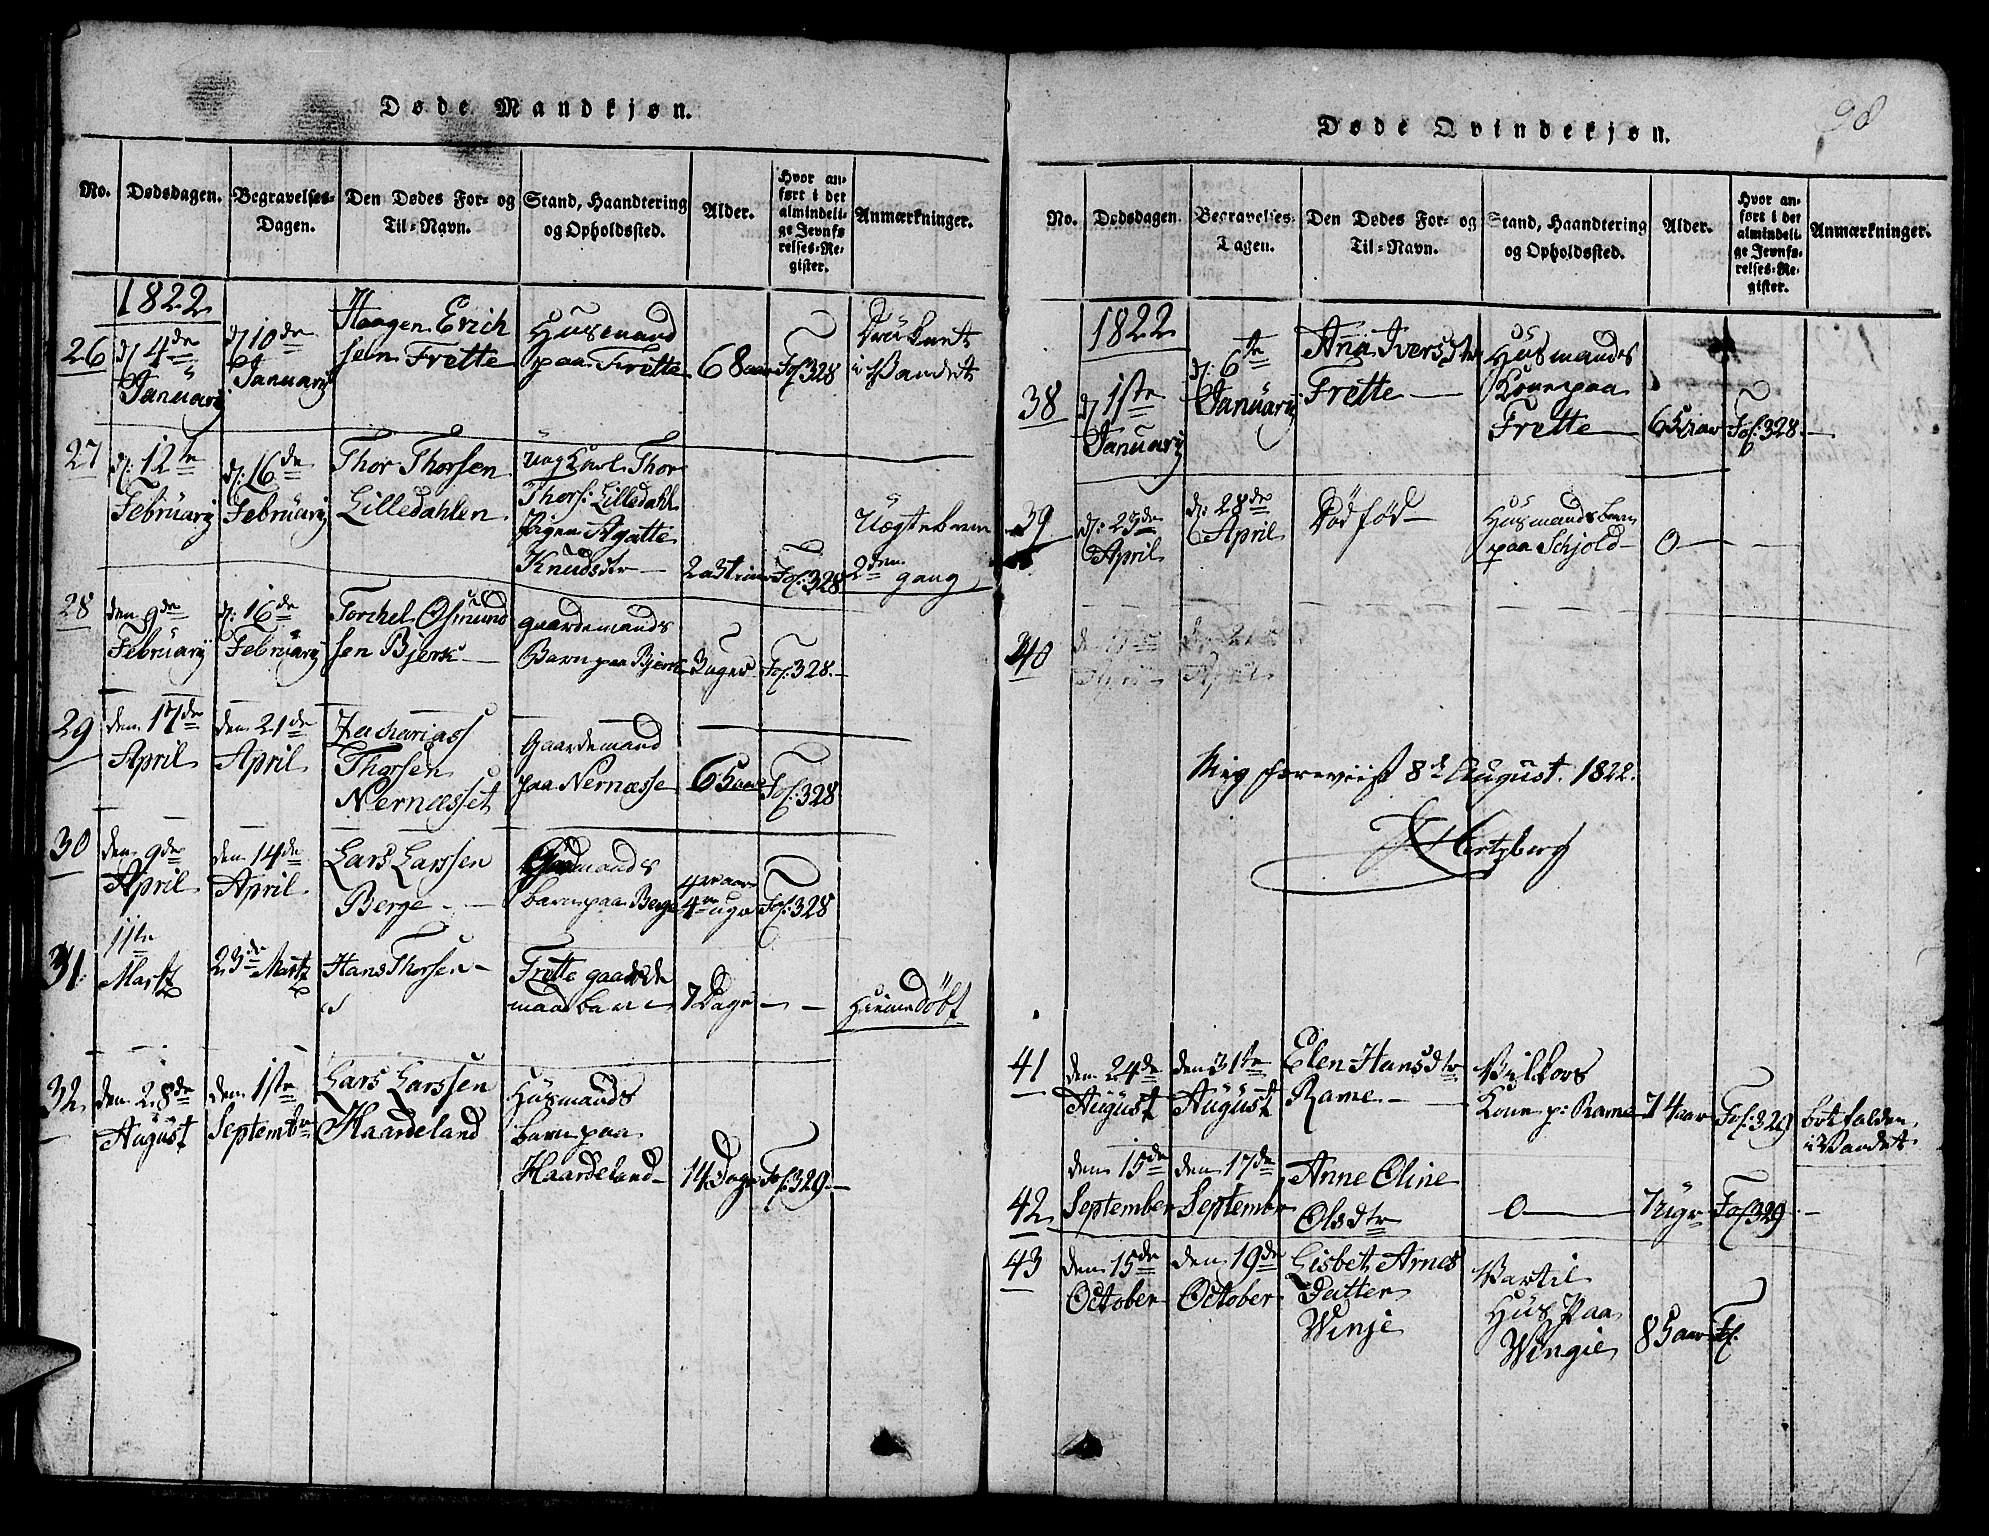 Døde Mandkjøn.
No. Dødsdagen. Begravelses-Dagen. Den Dødes For- og Til-Navn. Stand, Haandtering og Opholdssted. Alder. Hvor anført i det almindelige Jevnførelses-Register. Anmærkninger.
1822
26 d 4de Januarij
d 10de Januarij
Haagen Erich
sen Frette
Husmand
paa Frette
68 aar
Fol. 328
Drüknet
i Vandet
27 d: 12te Februarij
d: 16de Februarij
Thor Thorsen
Lilledahlen
Ungkarl Thor
Thors: Lilledahl
Pigen Agatte
Knudsdtr
Fol. 328
Uægtebarn
2den gang
28 den 9de Februarij
d: 16de Februarij
Torchel Osmund
sen Bjerk
gaardemands
Barn paa Bjerk
3 ager
Fol. 328.
29 den 17de April
den 21de April
Zacharias
Thorsen
Nernæsset
Gaardemand
paa Nernæsse
65 aar
Fol. 328
30 den 9de April
den 14de April
Lars Larssen
Berge
barn paa Berge
4 aar
4 ugr
Fol. 328
31: 11te Martz
23de Martz
Hans Thorsen
Frette gaarde
mand barn
7 Dage
HiemeDöbt
32 den 28de August
den 1ste Septembr
Lars Larssen
Haardeland
Husmands
barn paa
Haardeland
14 Dage
Fol. 329.
98
Døde Qvindekjøn.
No. Dødsdagen. Begravelses-Dagen. Den Dødes For- og Til-Navn. Stand, Haandtering og Opholdssted. Alder. Hvor anført i det almindelige Jevnførelses-Register. Anmærkninger.
1822
38 d 1ste Januarij
d: 6te Januarij
Ana Iversdtr
Frette
Husmandes
Kone paa
Frette
65 aar
Fol. 328.
39 d: 23de April
d: 28de April
Dödföd
Husmands barn
paa Schjold
0
40
Mig foreviist 8de August. 1822.
Hertzberg
41 den 24de August
den 31te August
Elen Hansdtr
Rame
Kone p: Rame
74 aar
Fol. 329
i Vandet
42 den 15de September
den 17de Septembr
Anne Oline
Olsdtr
0
7 ugr
Fol 329
43 den 15de October
den 19de October
Lisbet Arnes
Datter
Winje
Hus Paa
Wingie
85 aar
Fol.